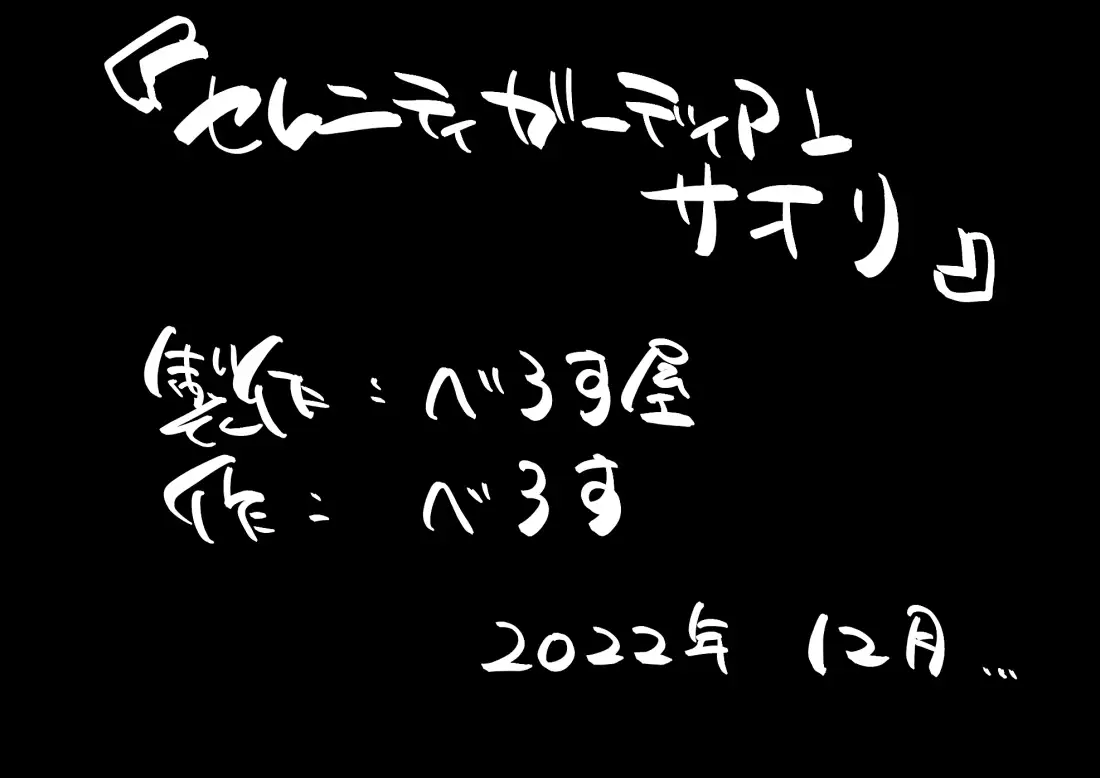 『セレニティガーディアン
サオリ』
製作：べろす屋
作：べろす
2022年 12月…